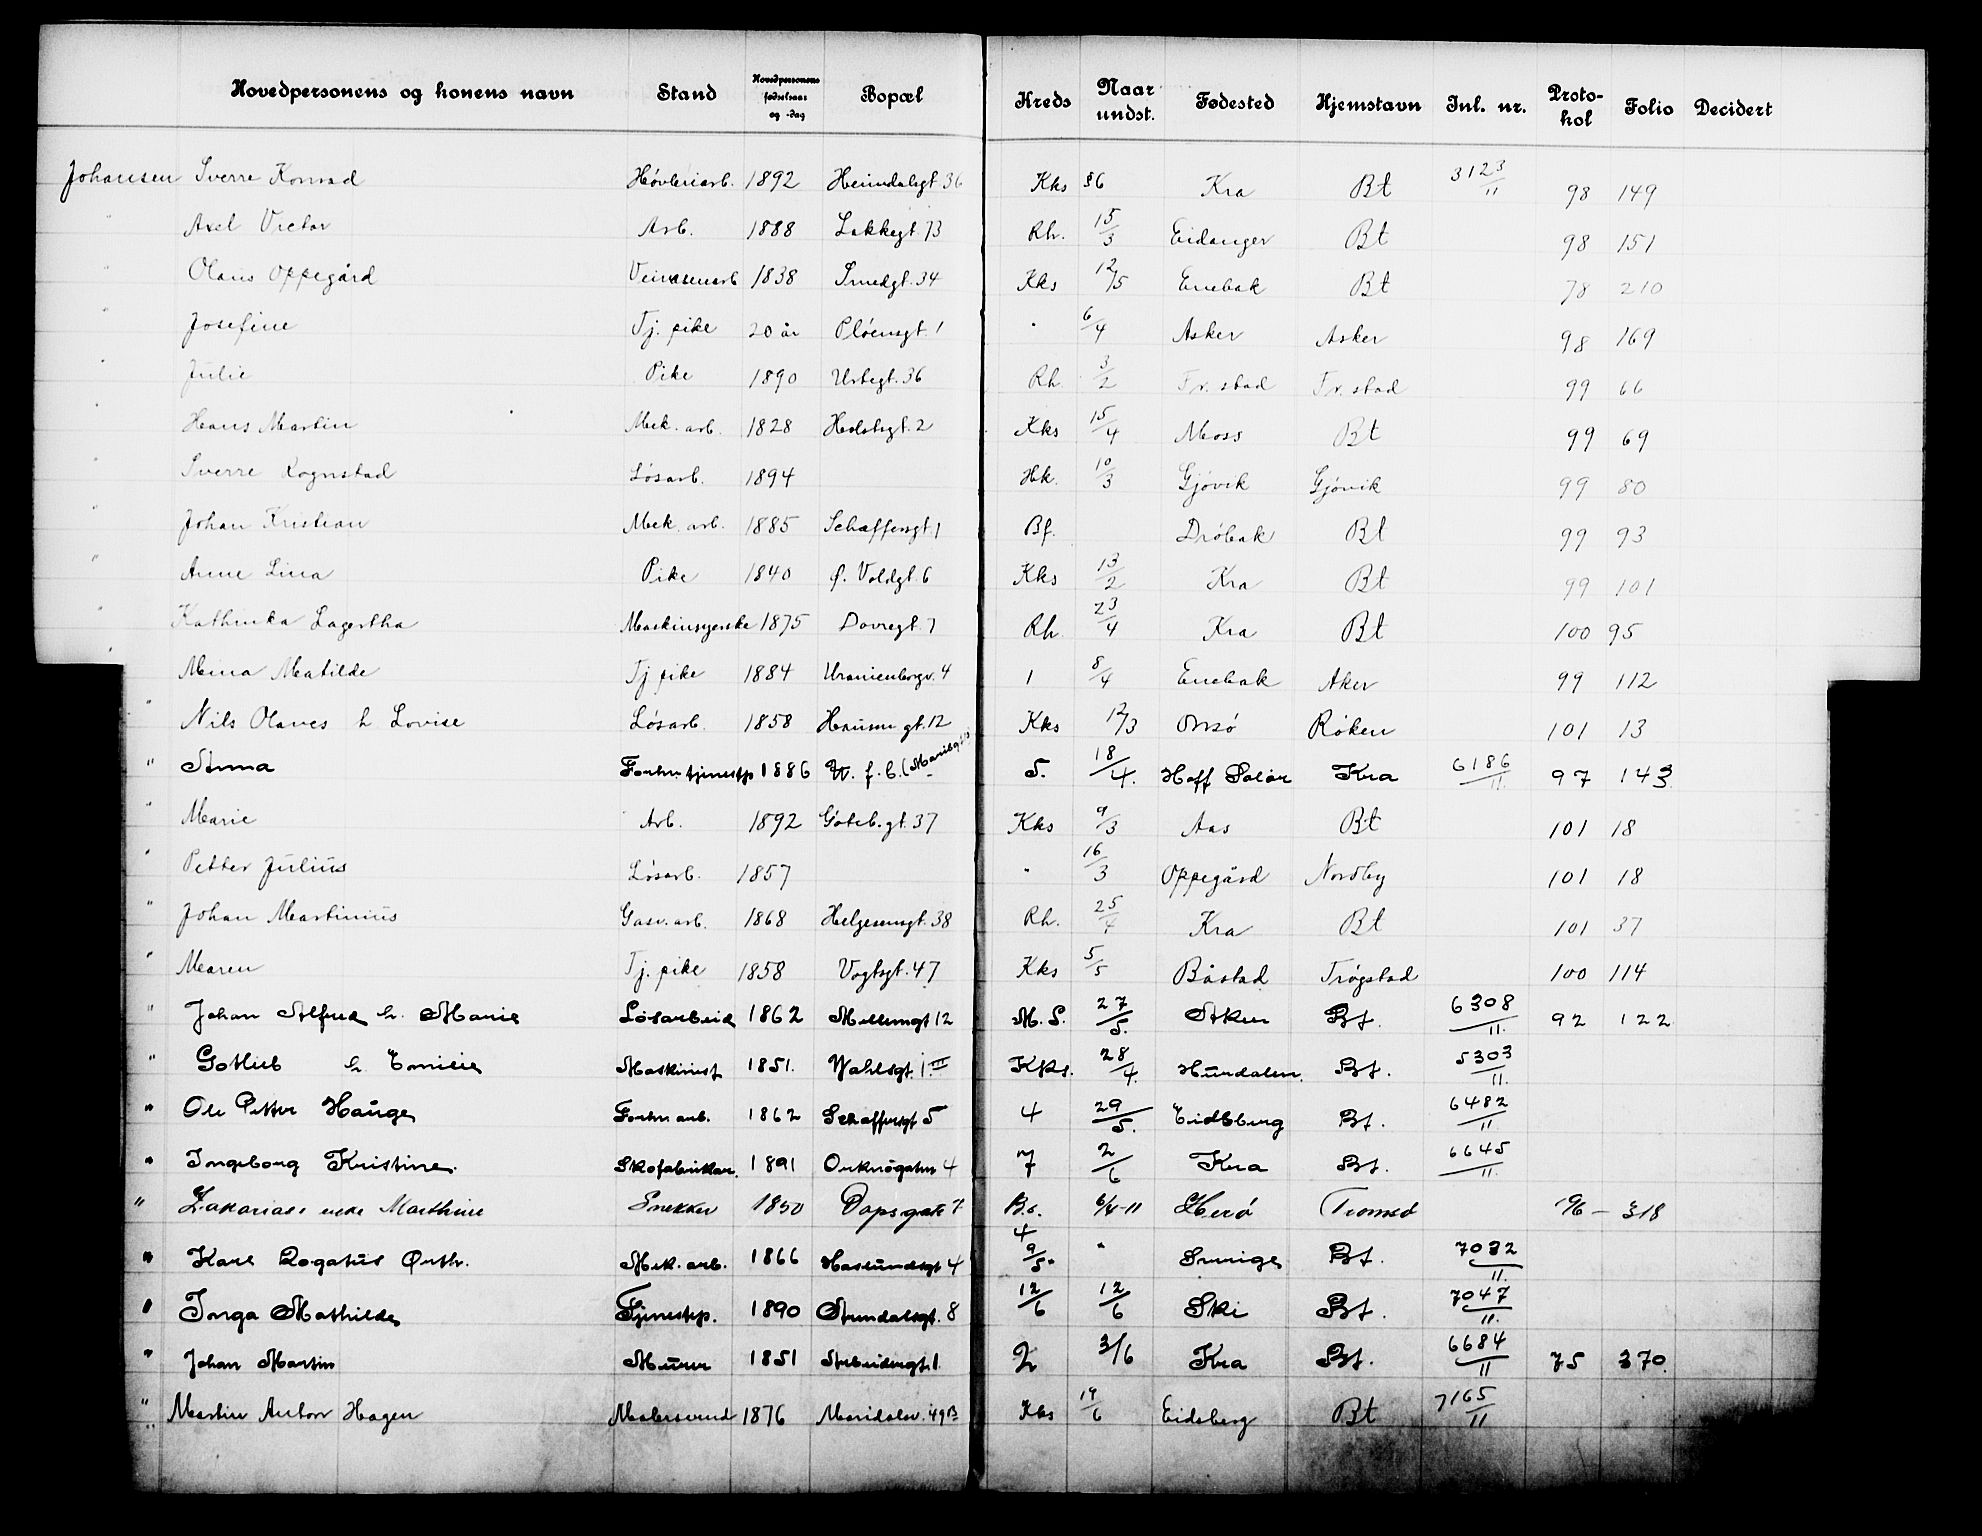 Hovedpersonens og konens navn Stand Hovedpersonens fødselsaar og -dag Bopæl Kreds Naar undst. Fødested Hjemstavn Inl. nr. Protokol Folio Decidert
Johansen Sverre Konrad Høvleriarb. 1892 Heimdalsgt 36 Kks Kra Bt 3123/11 98 149
" Axel Victor Arb. 1888 Lakkegt 73 Rh. 15/3 Eidanger Bt 98 151
" Olaus Oppegård Veivæsenarb 1838 Smedgt. 34 Kks 12/5 Enebak Bt 78 210
" Josefine Tj. pike 20 år Pløensgt. 1 " 6/4 Asker Asker 98 169
" Julie Pike 1890 Urtegt. 36 Rh. 3/2 Fr. stad Fr. stad 99 66
" Hans Martin Mek. arb. 1828 Holstsgt. 2 Kks 15/4 Moss Bt 99 69
" Sverre Rognstad Løsarb. 1894 Hk. 10/3 Gjøvik Gjøvik 99 80
" Johan Kristian Mek. arb. 1885 Schæffersgt 1 Bf. Drøbak Bt 99 93
" Anne Lina Pike 1840 Ø. Voldgt. 6 Kks 13/2 Kra Bt 99 101
" Kathinka Lagertha Maskinsyerske 1875 Dovregt. 7 Rh. 23/4 Kra Bt 100 95
" Mina Matilde Tj pike 1884 Uranienborgv. 4 1 8/4 Enebak Aker 99 112
" Nils Olaves h Lovise Løsarb. 1858 Hausm gt. 12 Kks 12/3 Onsø Røken 101 13
" Anna Forhv tjenestp 1886 (Marieg 5. 18/4. Hoff Solør Kra 6186/11. 97 143
" Marie Arb. 1892 Göteb. gt. 37 Kks 9/3 Aas Bt 101 18
" Petter Julius Løsarb. 1857 " 16/3 Oppegård Nordby 101 18
" Johan Martinius Gasv. arb. 1868 Helgesensgt. 38 Rh. 25/4 Kra Bt 101 37
" Maren Tj. pike 1858 Vogtsgt. 47 Kks 5/5 Båstad Trøgstad 100 114
" Johan Alfred h. Marie Løsarbeid 1862 Møllerngt 12 M. S. 27/5. Aker Bt. 6308/11. 92 122
" Gotlieb h. Emilie Maskinist 1851. Wahlsgt. 1. II Kks. 28/4. Hurdalen. Bt. 5303/11.
" Ole Petter Hauge Forhv arb. 1862 Schæffersgt 5 4 29/5. Eidsberg Bt. 6482/11
" Ingeborg Kristine. Skofabrikar. 1891 Orknøgaten 4 7 2/6 Kra Bt. 6645/11.
" Zakarias enke Marthine Snekker 1850 Dopsgate 7 B.s. 6/4-11 Herø Tromsø 96 — 318
" Karl Rogatus Orth. Mek. arb. 1866 Haslundsgt 4 4 9/5. " Sverige Bt. 7032/11.
" Inga Mathilde Tjenestp. 1890 Arendalsgt. 8 12/6 12/6 Ski Bt. 7047/11.
" Johan Martin Murer 1851 Arbeidergt. 1. 2 3/6 Kra Bt. 6684/11 75 370.
" Martin Anton Hagen Malersvend 1876 Maridalsv. 49B Kks 19/6 Eidsberg Bt 7165/11